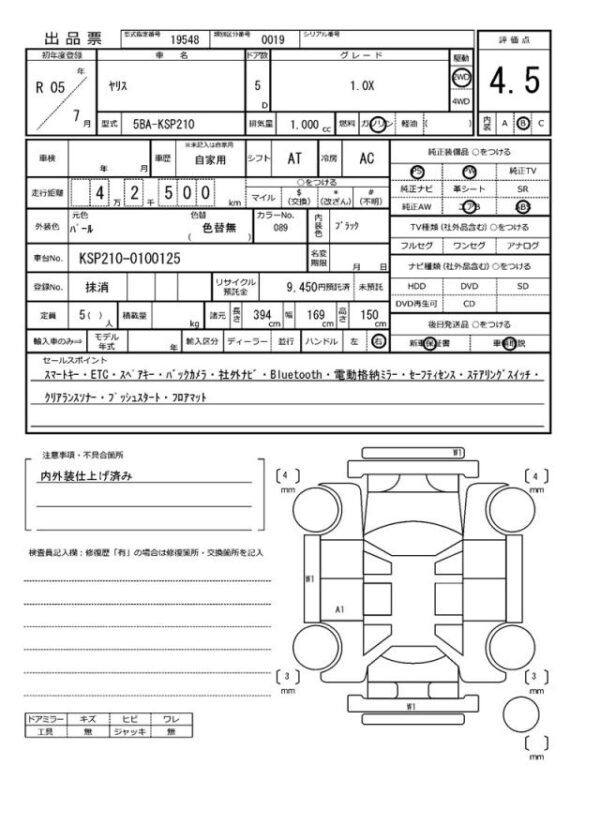 出品票 型式指定番号 19548 類別区分番号 0019 シリアル番号
評価点
4.5
内装 A B C
初年度登録 車名 ドア数 グレード 駆動
R 05 年 7 月
ﾔﾘｽ 5 D 1.0X 2WD 4WD
型式 5BA-KSP210 排気量 1,000 cc 燃料 ガソリン 軽油 ( )
車検 年 月 車歴 ※未記入は自家用 自家用 シフト AT 冷房 AC
走行距離 4 万 2 千 5 0 0 km マイル ○をつける $ (交換) * (改ざん) # (不明)
外装色 元色 ﾊﾟｰﾙ 色替 ( 色替無 ) カラーNo. 089 内装色 ﾌﾞﾗｯｸ
車台No. KSP210-0100125 名変期限 月 日
登録No. 抹消 リサイクル預託金 9,450円預託済 未預託
定員 5( ) 人 積載量 kg 諸元 長さ 394 cm 幅 169 cm 高さ 150 cm
輸入車のみ⇒ モデル年式 年 輸入区分 ディーラー 並行 ハンドル 左 右
純正装備品 ○をつける
PS PW 純正TV
純正ナビ 革シート SR
純正AW エアB ABS
TV種類(社外品含む) ○をつける
フルセグ ワンセグ アナログ
ナビ種類(社外品含む) ○をつける
HDD DVD SD
DVD再生可 CD
後日発送品 ○をつける
新車保証書 車輌取説
セールスポイント
ｽﾏｰﾄｷｰ・ETC・ｽﾍﾟｱｷｰ・ﾊﾞｯｸｶﾒﾗ・社外ﾅﾋﾞ・Bluetooth・電動格納ﾐﾗｰ・ｾｰﾌﾃｨｾﾝｽ・ｽﾃｱﾘﾝｸﾞｽｲｯﾁ・
ｸﾘｱﾗﾝｽｿﾅｰ・ﾌﾟｯｼｭｽﾀｰﾄ・ﾌﾛｱﾏｯﾄ
注意事項・不具合箇所
内外装仕上げ済み
検査員記入欄：修復歴「有」の場合は修復箇所・交換箇所を記入
ドアミラー キズ ヒビ ワレ
工具 無 ジャッキ 無
W1
( 4 ) mm ( 4 ) mm
W1
A1
( 3 ) mm ( 3 ) mm
W1
( ) mm